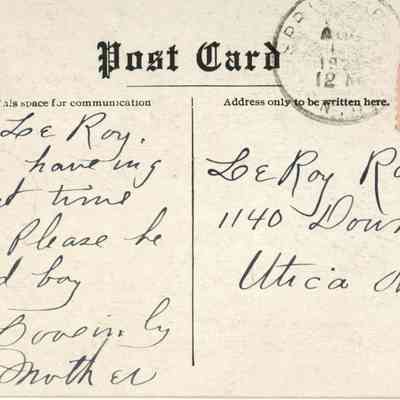 Post Card
his space for communication
Address only to be written here.
12 M
LeRoy.
haveing
time
Please be
boy
Lovingly
Mother
LeRoy Ro
1140 Down
Utica